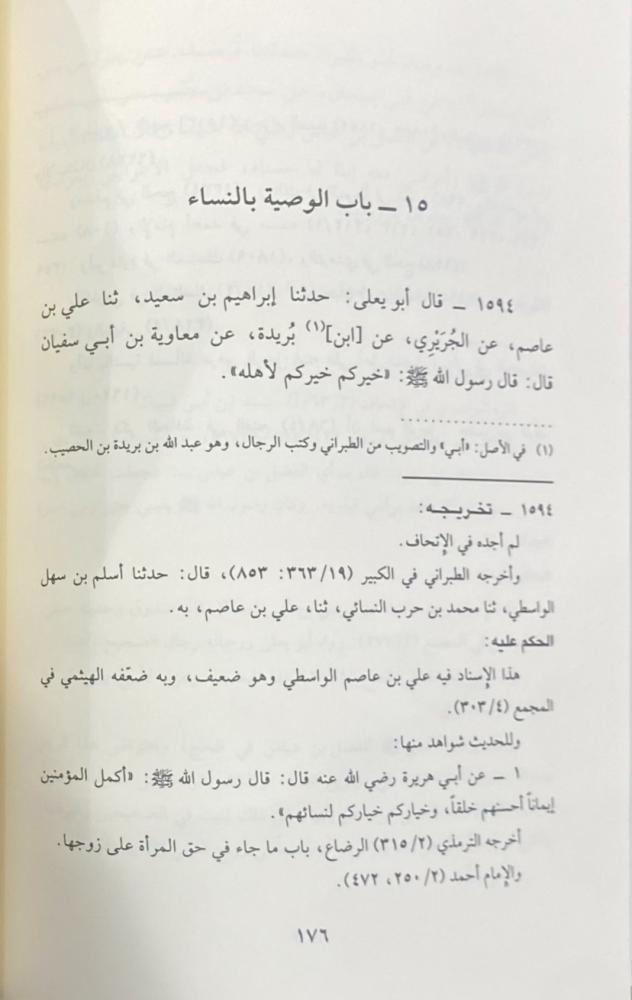 ١٥ ـ باب الوصية بالنساء
١٥٩٤ ـ قال أبو يعلى: حدثنا إبراهيم بن سعيد، ثنا علي بن
عاصم، عن الجُرَيْرِي، عن [ابن](١) بُريدة، عن معاوية بن أبي سفيان
قال: قال رسول الله ﷺ: «خيركم خيركم لأهله».
(١) في الأصل: «أبي» والتصويب من الطبراني وكتب الرجال، وهو عبد الله بن بريدة بن الحصيب.
١٥٩٤ ـ تخريجه:
لم أجده في الإتحاف.
وأخرجه الطبراني في الكبير (١٩/٣٦٣: ٨٥٣)، قال: حدثنا أسلم بن سهل
الواسطي، ثنا محمد بن حرب النسائي، ثنا، علي بن عاصم، به.
الحكم عليه:
هذا الإسناد فيه علي بن عاصم الواسطي وهو ضعيف، وبه ضعّفه الهيثمي في
المجمع (٤/٣٠٣).
وللحديث شواهد منها:
١ ـ عن أبي هريرة رضي الله عنه قال: قال رسول الله ﷺ: «أكمل المؤمنين
إيماناً أحسنهم خلقاً، وخياركم خياركم لنسائهم».
أخرجه الترمذي (٢/٣١٥) الرضاع، باب ما جاء في حق المرأة على زوجها.
والإمام أحمد (٢/٢٥٠، ٤٧٢).
١٧٦